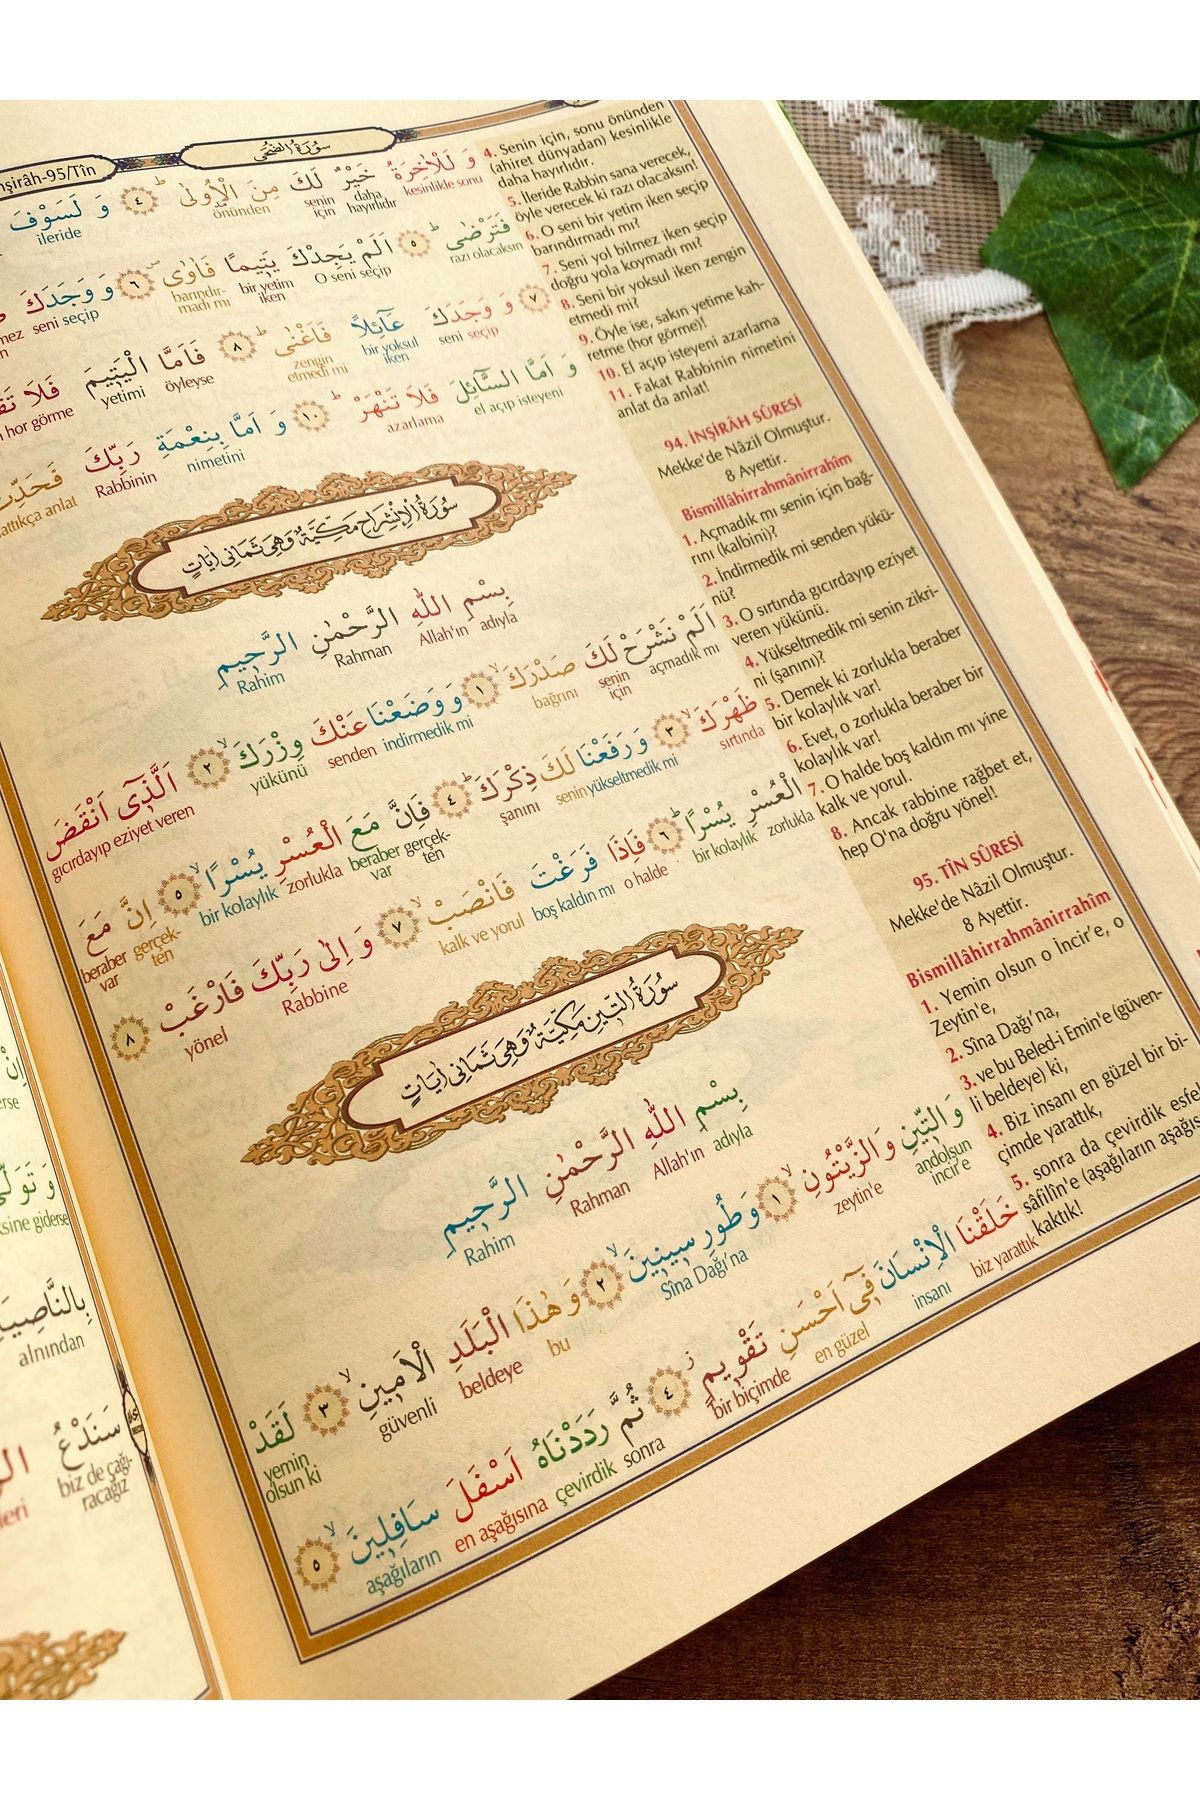 سُورَةُ الضُّحٰى
nşirâh-95/Tîn
وَ لَلْاٰخِرَةُ خَيْرٌ لَكَ مِنَ الْاُولٰى ٤ وَ لَسَوْفَ
kesinlikle sonu daha hayırlıdır senin için önünden ileride
فَتَرْضٰى ٥ اَلَمْ يَجِدْكَ يَتِيمًا فَاٰوٰى ٦ وَ وَجَدَكَ
razı olacaksın O seni seçip bir yetim iken barındırmadı mı seni seçip
٧ وَ وَجَدَكَ عَآئِلاً فَاَغْنٰى ٨ فَاَمَّا الْيَتِيمَ فَلَا
seni seçip bir yoksul iken zengin etmedi mi öyleyse yetimi hor görme
وَ اَمَّا السَّآئِلَ فَلَا تَنْهَرْ ١٠ وَ اَمَّا بِنِعْمَةِ رَبِّكَ فَحَدِّثْ
el açıp isteyeni azarlama nimetini Rabbinin anlat
سُورَةُ الْاِنْشِرَاحِ مَكِّيَّةٌ وَهِيَ ثَمَانِي اٰيَاتٍ
بِسْمِ اللّٰهِ الرَّحْمٰنِ الرَّحِيمِ
adıyla Allah'ın Rahman Rahim
اَلَمْ نَشْرَحْ لَكَ صَدْرَكَ ١ وَ وَضَعْنَا عَنْكَ وِزْرَكَ ٢ اَلَّذِىٓ اَنْقَضَ
açmadık mı senin için bağrını indirmedik mi senden yükünü gıcırdayıp eziyet veren
ظَهْرَكَ ٣ وَ رَفَعْنَا لَكَ ذِكْرَكَ ٤ فَاِنَّ مَعَ الْعُسْرِ يُسْرًا ٥ اِنَّ مَعَ
sırtında yükseltmedik mi senin şanını gerçekten beraber var zorlukla bir kolaylık gerçekten beraber var
الْعُسْرِ يُسْرًا ٦ فَاِذَا فَرَغْتَ فَانْصَبْ ٧ وَ اِلٰى رَبِّكَ فَارْغَبْ ٨
zorlukla bir kolaylık o halde boş kaldın mı kalk ve yorul Rabbine yönel
سُورَةُ التِّينِ مَكِّيَّةٌ وَهِيَ ثَمَانِي اٰيَاتٍ
بِسْمِ اللّٰهِ الرَّحْمٰنِ الرَّحِيمِ
adıyla Allah'ın Rahman Rahim
وَ التِّينِ وَ الزَّيْتُونِ ١ وَ طُورِ سِينِينَ ٢ وَ هٰذَا الْبَلَدِ الْاَمِينِ ٣ لَقَدْ
andolsun incir'e zeytin'e Sîna Dağı'na bu beldeye güvenli yemin olsun ki
خَلَقْنَا الْاِنْسَانَ فِىٓ اَحْسَنِ تَقْوِيمٍ ٤ ثُمَّ رَدَدْنَاهُ اَسْفَلَ سَافِلِينَ ٥
biz yarattık insanı en güzel bir biçimde sonra çevirdik en aşağısına aşağıların
4. Senin için, sonu önünden
(ahiret dünyadan) kesinlikle
daha hayırlıdır.
5. İleride Rabbin sana verecek,
öyle verecek ki razı olacaksın!
6. O seni bir yetim iken seçip
barındırmadı mı?
7. Seni yol bilmez iken seçip
doğru yola koymadı mı?
8. Seni bir yoksul iken zengin
etmedi mi?
9. Öyle ise, sakın yetime kah-
retme (hor görme)!
10. El açıp isteyeni azarlama
11. Fakat Rabbinin nimetini
anlat da anlat!
94. İNŞİRÂH SÛRESİ
Mekke'de Nâzil Olmuştur.
8 Ayettir.
Bismillâhirrahmânirrahîm
1. Açmadık mı senin için bağ-
rını (kalbini)?
2. İndirmedik mi senden yükü-
nü?
3. O sırtında gıcırdayıp eziyet
veren yükünü.
4. Yükseltmedik mi senin zikri-
ni (şanını)?
5. Demek ki zorlukla beraber
bir kolaylık var!
6. Evet, o zorlukla beraber bir
kolaylık var!
7. O halde boş kaldın mı yine
kalk ve yorul.
8. Ancak rabbine rağbet et,
hep O'na doğru yönel!
95. TÎN SÛRESİ
Mekke'de Nâzil Olmuştur.
8 Ayettir.
Bismillâhirrahmânirrahîm
1. Yemin olsun o İncir'e, o
Zeytin'e,
2. Sîna Dağı'na,
3. ve bu Beled-i Emin'e (güven-
li beldeye) ki,
4. Biz insanı en güzel bir bi-
çimde yarattık,
5. sonra da çevirdik esfe
sâfilîn'e (aşağıların aşağıs
kaktık!
وَ تَوَلّٰى
sine giderse
alnından
سَنَدْعُ
biz de çağı-
racağız